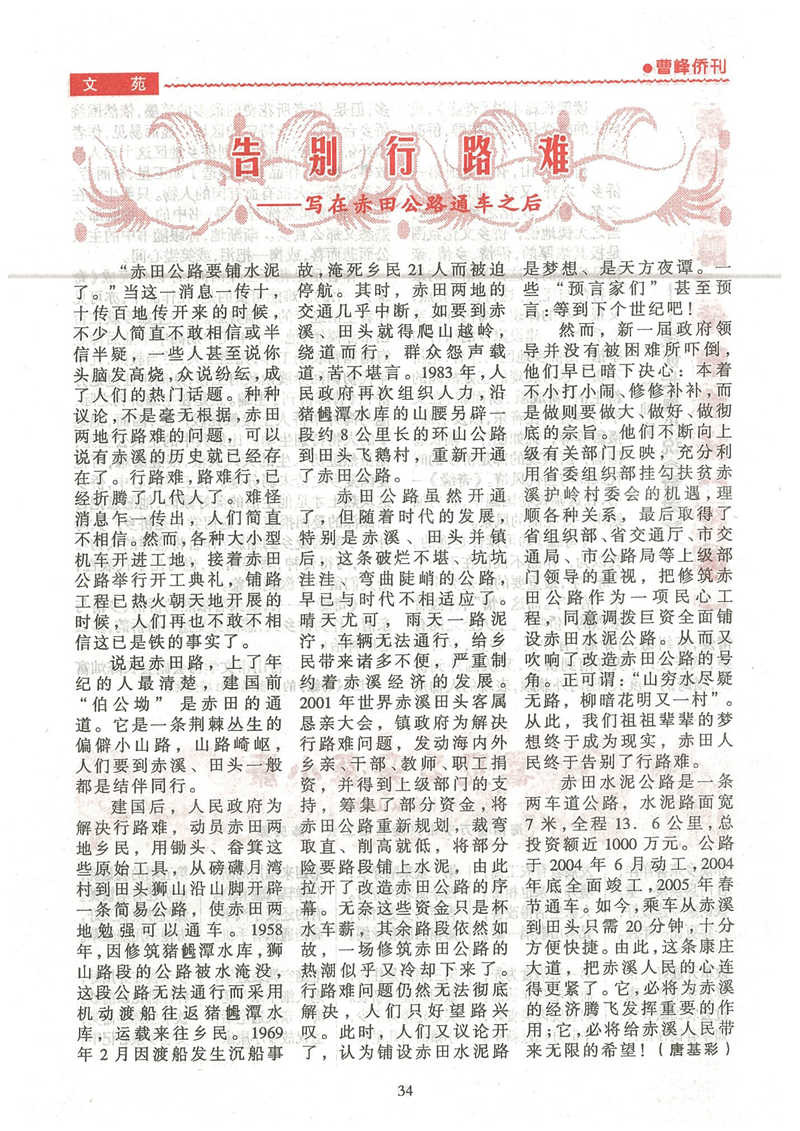 ●曹峰侨刊
文 苑
告别行路难
——写在赤田公路通车之后
“赤田公路要铺水泥
了。”当这一消息一传十，
十传百地传开来的时候，
不少人简直不敢相信或半
信半疑，一些人甚至说你
头脑发高烧，众说纷纭，成
了人们的热门话题。种种
议论，不是毫无根据，赤田
两地行路难的问题，可以
说有赤溪的历史就已经存
在了。行路难，路难行，已
经折腾了几代人了。难怪
消息乍一传出，人们简直
不相信。然而，各种大小型
机车开进工地，接着赤田
公路举行开工典礼，铺路
工程已热火朝天地开展的
时候，人们再也不敢不相
信这已是铁的事实了。
说起赤田路，上了年
纪的人最清楚，建国前
“伯公坳”是赤田的通
道。它是一条荆棘丛生的
偏僻小山路，山路崎岖，
人们要到赤溪、田头一般
都是结伴同行。
建国后，人民政府为
解决行路难，动员赤田两
地乡民，用锄头、畚箕这
些原始工具，从磅礴月湾
村到田头狮山沿山脚开辟
一条简易公路，使赤田两
地勉强可以通车。1958
年，因修筑猪潭水库，狮
山路段的公路被水淹没，
这段公路无法通行而采用
机动渡船往返猪潭水
库，运载来往乡民。1969
年2月因渡船发生沉船事
故，淹死乡民21人而被迫
停航。其时，赤田两地的
交通几乎中断，如要到赤
溪、田头就得爬山越岭，
绕道而行，群众怨声载
道，苦不堪言。1983年，人
民政府再次组织人力，沿
猪潭水库的山腰另辟一
段约8公里长的环山公路
到田头飞鹅村，重新开通
了赤田公路。
赤田公路虽然开通
了，但随着时代的发展，
特别是赤溪、田头并镇
后，这条破烂不堪、坑坑
洼洼、弯曲陡峭的公路，
早已与时代不相适应了。
晴天尤可，雨天一路泥
泞，车辆无法通行，给乡
民带来诸多不便，严重制
约着赤溪经济的发展。
2001年世界赤溪田头客属
恳亲大会，镇政府为解决
行路难问题，发动海内外
乡亲、干部、教师、职工捐
资，并得到上级部门的支
持，筹集了部分资金，将
赤田公路重新规划，裁弯
取直、削高就低，将部分
险要路段铺上水泥，由此
拉开了改造赤田公路的序
幕。无奈这些资金只是杯
水车薪，其余路段依然如
故，一场修筑赤田公路的
热潮似乎又冷却下来了。
行路难问题仍然无法彻底
解决，人们只好望路兴
叹。此时，人们又议论开
了，认为铺设赤田水泥路
是梦想、是天方夜谭。一
些“预言家们”甚至预
言：等到下个世纪吧！
然而，新一届政府领
导并没有被困难所吓倒，
他们早已暗下决心：本着
不小打小闹、修修补补，而
是做则要做大、做好、做彻
底的宗旨。他们不断向上
级有关部门反映，充分利
用省委组织部挂勾扶贫赤
溪护岭村委会的机遇，理
顺各种关系，最后取得了
省组织部、省交通厅、市交
通局、市公路局等上级部
门领导的重视，把修筑赤
田公路作为一项民心工
程，同意调拨巨资全面铺
设赤田水泥公路。从而又
吹响了改造赤田公路的号
角。正可谓：“山穷水尽疑
无路，柳暗花明又一村”。
从此，我们祖祖辈辈的梦
想终于成为现实，赤田人
民终于告别了行路难。
赤田水泥公路是一条
两车道公路，水泥路面宽
7米，全程13．6公里，总
投资额近1000万元。公路
于2004年6月动工，2004
年底全面竣工，2005年春
节通车。如今，乘车从赤溪
到田头只需20分钟，十分
方便快捷。由此，这条康庄
大道，把赤溪人民的心连
得更紧了。它，必将为赤溪
的经济腾飞发挥重要的作
用；它，必将给赤溪人民带
来无限的希望！（唐基彩）
34